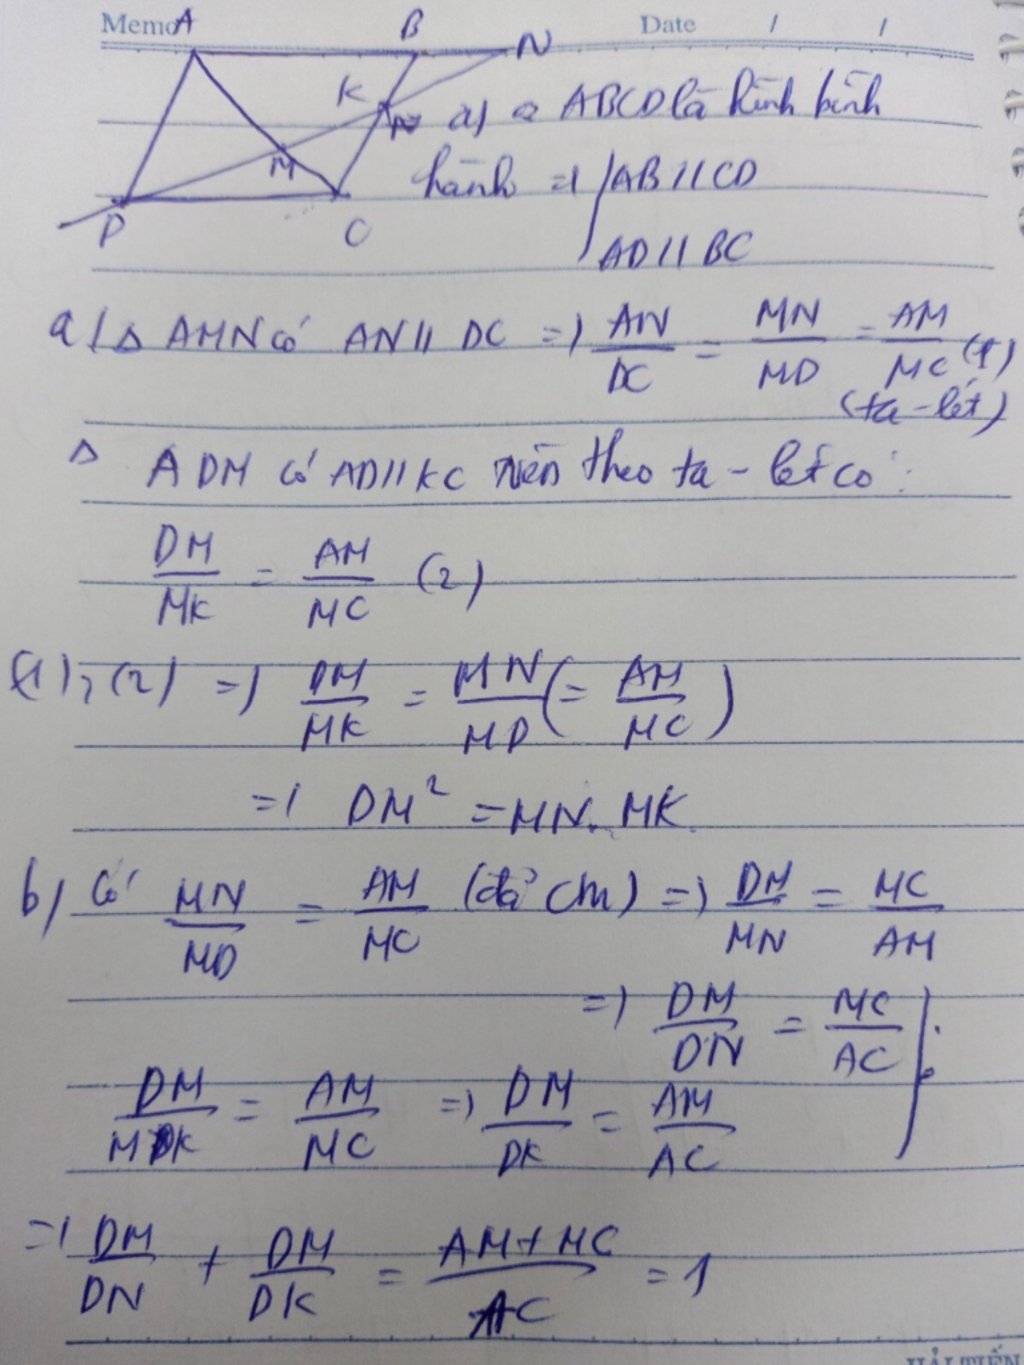 Memo Date / /
A B N
K
a) ABCD là hình bình
M
hành => AB // CD
D C
AD // BC
a/ Δ AMN có AN // DC => AN/DC = MN/MD = AM/MC (1)
(ta-lét)
Δ ADM có AD // KC nên theo ta-lét có:
DM/MK = AM/MC (2)
(1), (2) => DM/MK = MN/MD (= AM/MC)
=> DM² = MN. MK.
b/ Có MN/MD = AM/MC (đã cm) => DM/MN = MC/AM
=> DM/DN = MC/AC
DM/MK = AM/MC => DM/DK = AM/AC
=> DM/DN + DM/DK = AM+MC/AC = 1
HẢI TIẾN